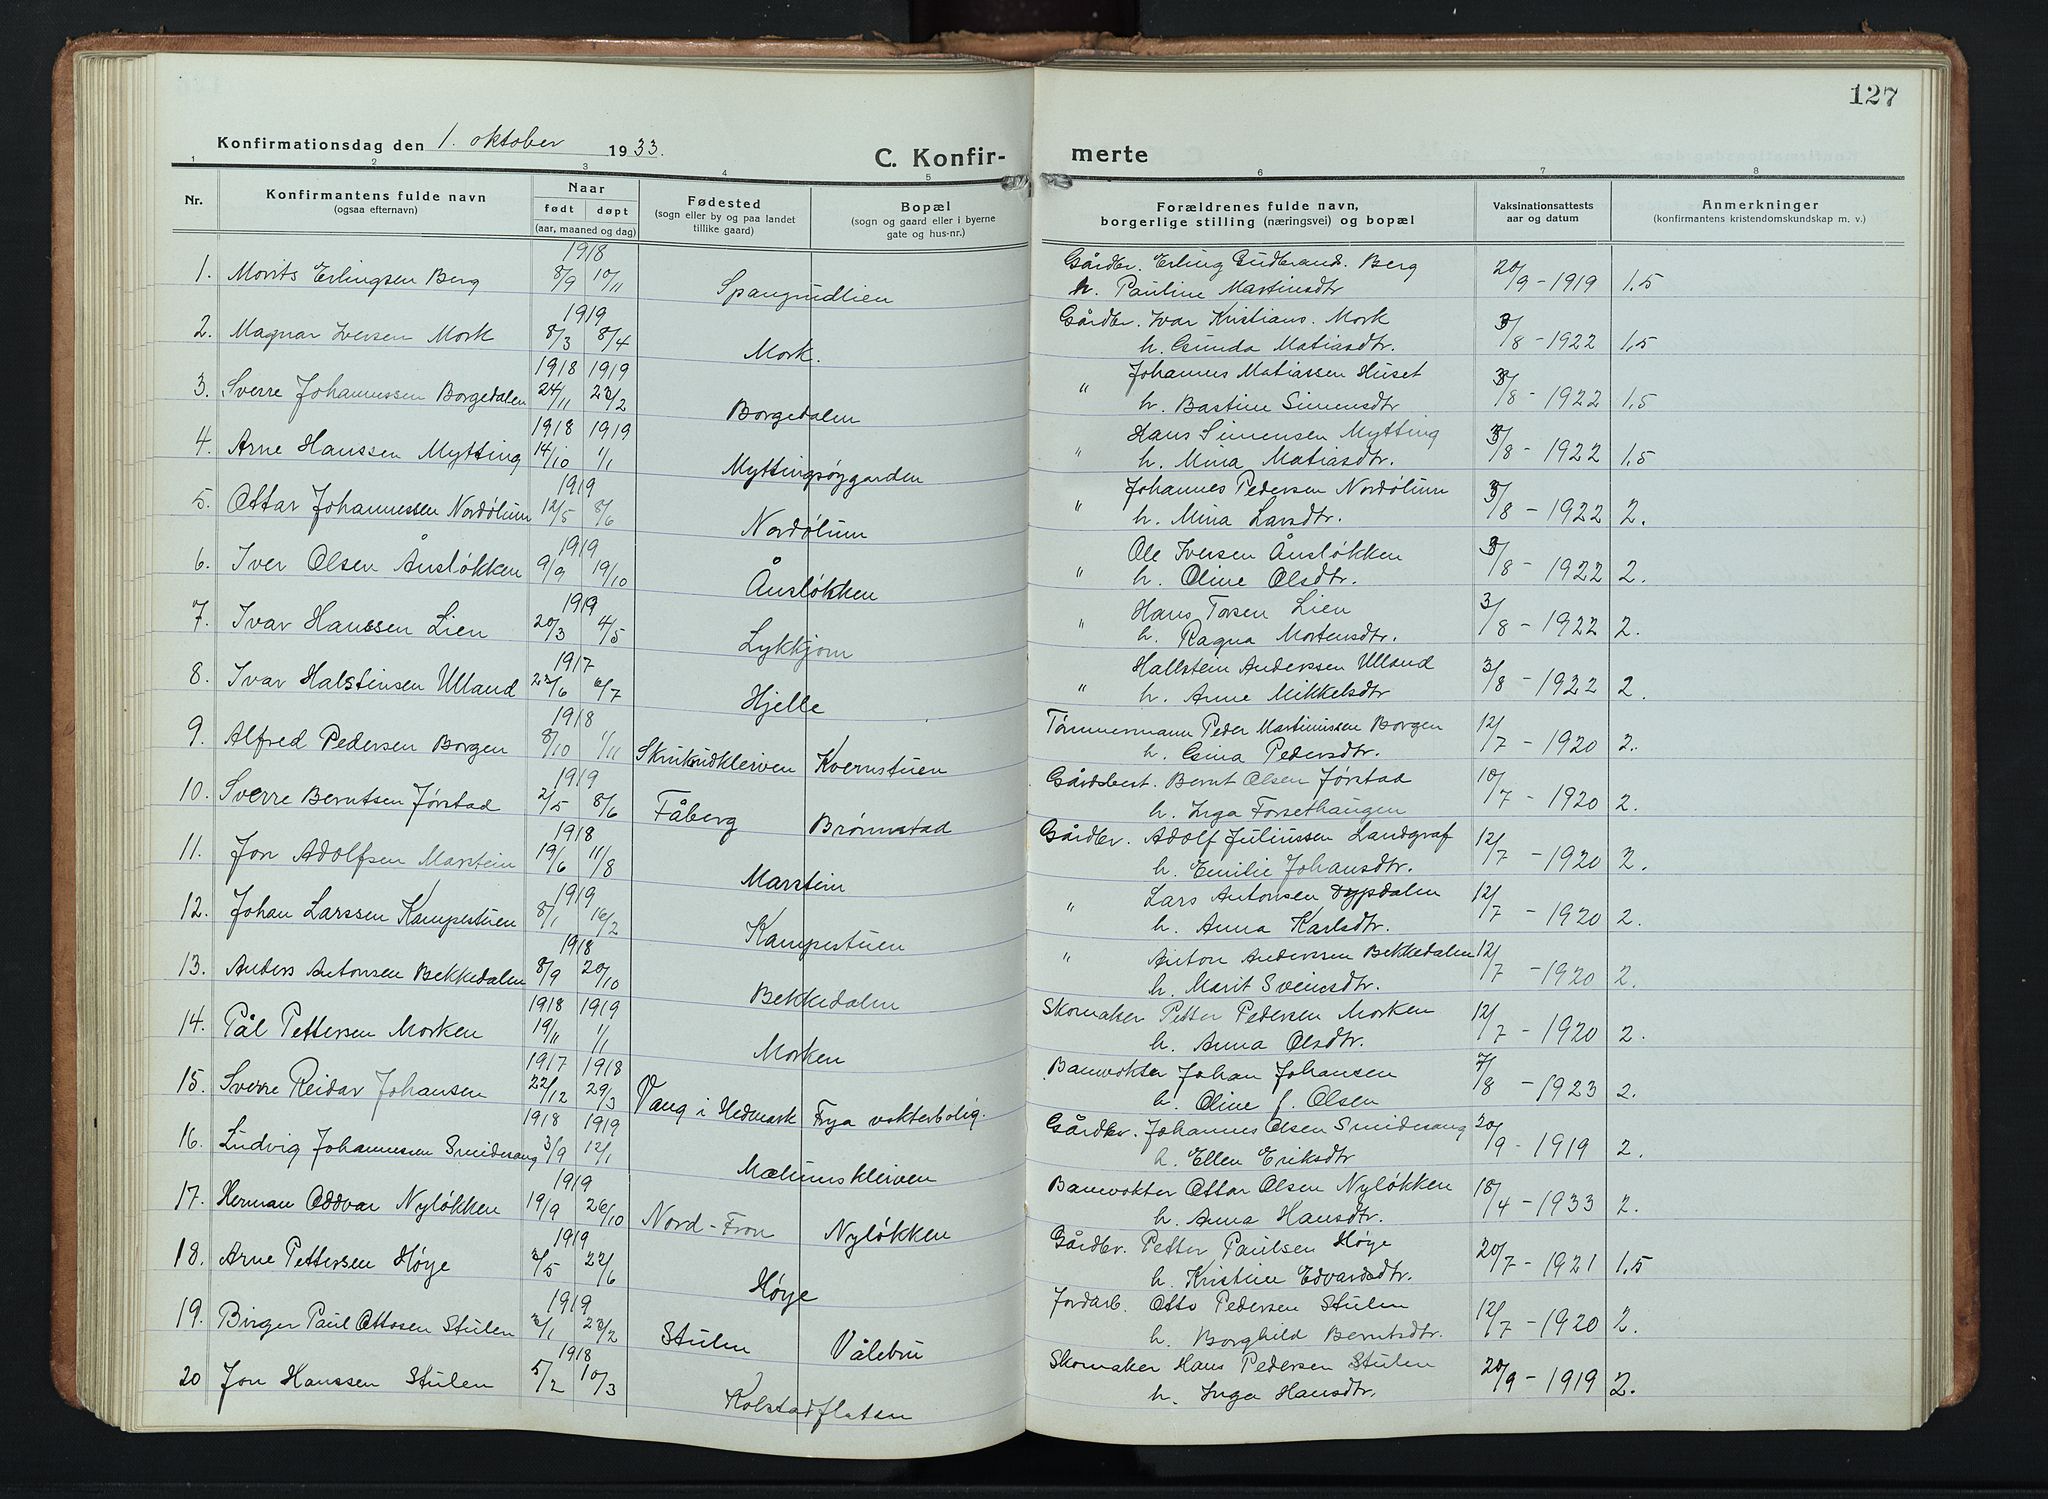 127
Konfirmationsdag den 1. oktober 1933. C. Konfirmerte
1 2 3 4 5 6 7 8
Nr. Konfirmantens fulde navn (ogsaa efternavn) Naar født døpt (aar, maaned og dag) Fødested (sogn eller by og paa landet tillike gaard) Bopæl (sogn og gaard eller i byerne gate og hus-nr.) Forældrenes fulde navn, borgerlige stilling (næringsvei) og bopæl Vaksinationsattests aar og datum Anmerkninger (konfirmantens kristendomskundskap m. v.)
1918
1. Morits Erlingsen Berg 8/9 10/11 Spangrudlien Gårdbr. Erling Gudbrands. Berg
h. Pauline Martinsdtr 20/9 - 1919 1.5
1919
2. Magnar Iversen Mork 8/3 8/4 Mork. Gårdbr. Ivar Kristians. Mork
h. Gunda Matiasdtr. 3/8 - 1922 1,5
1918 1919
3. Sverre Johannessen Borgedalen 24/11 23/2 Borgedalen " Johannes Matiassen Huset
h. Bastine Simensdtr 3/8 - 1922 1,5
1918 1919
4. Arne Hanssen Mytting 14/10 1/1 Myttingsøygarden " Hans Simensen Mytting
h. Mina Matiasdtr. 3/8 - 1922 1,5
1919
5. Ottar Johannessen Nordølum 12/5 8/6 Nordølum " Johannes Pedersen Nordølum
h. Mina Larsdtr. 3/8 - 1922 2.
1919
6. Iver Olsen Ånsløkken 9/9 19/10 Ånsløkken " Ole Iversen Ånsløkken
h. Oline Olsdtr. 3/8 - 1922 2.
1919
7. Ivar Hanssen Lien 20/3 4/5 Lykkjom " Hans Torsen Lien
h. Ragna Mortensdtr. 3/8 - 1922 2.
1917
8. Ivar Halstinsen Ulland 23/6 6/7 Hjelle " Hallstein Anderssen Ulland
h. Anne Mikkelsdtr 3/8 - 1922 2.
1918
9. Alfred Pedersen Borgen 8/10 1/11 Skurudkleiven Kvernstuen Tømmermann Peder Martinussen Borgen
h. Gina Pedersdtr. 12/7 - 1920 2.
1919
10. Sverre Berntsen Jørstad 2/5 8/6 Fåberg Brønnstad Gårdsbest. Bernt Olsen Jørstad
h. Inga Forsethaugen 10/7 - 1920 2.
1918
11. Jon Adolfsen Marstein 19/6 11/8 Marstein Gårdbr. Adolf Juliussen Handgraf
h. Emilie Johansdtr. 12/7 - 1920 2.
1919
12. Johan Larssen Kampestuen 8/1 16/2 Kampestuen " Lars Antonsen Dypdalen
h. Anna Karlsdtr. 12/7 - 1920 2.
1918
13. Anders Antonsen Bekkedalen 8/9 20/10 Bekkedalen " Anton Anderssen Bekkedalen
h. Marit Sveinsdtr. 12/7 - 1920 2.
1918 1919
14. Pål Pettersen Morken 19/11 1/1 Morken Skomaker Petter Pedersen Morken
h. Anna Olsdtr. 12/7 - 1920 2.
1917 1918
15. Sverre Reidar Johansen 22/12 29/3 Vang i Hedmark Frya vokterbolig. Banvokter Johan Johansen
h. Oline f. Olsen 7/8 - 1923 2.
1918 1919
16. Ludvig Johannessen Smidesang 3/9 12/1 Mælumskleiven Gårdbr. Johannes Olsen Smidesang
h. Ellen Eriksdtr 20/9 - 1919 2.
1919
17. Herman Oddvar Nyløkken 19/9 26/10 Nord-Fron Nyløkken Banvokter Ottar Olsen Nyløkken
h. Anna Hansdtr. 18/4 - 1933 2.
1919
18. Arne Pettersen Høye 2/5 22/6 Høye Gårdbr. Petter Paulsen Høye
h. Kristine Edvardsdtr. 20/7 - 1921 1,5
1919
19. Birger Paul Ottosen Stulen 3/1 23/2 Stulen Vålebru Jordarb. Otto Pedersen Stulen
h. Borghild Berntsdtr. 12/7 - 1920 2.
1918
20 Jon Hanssen Stulen 5/2 10/3 Kolstadflaten Skomaker Hans Pedersen Stulen
h. Inga Hansdtr. 20/9 - 1919 2.